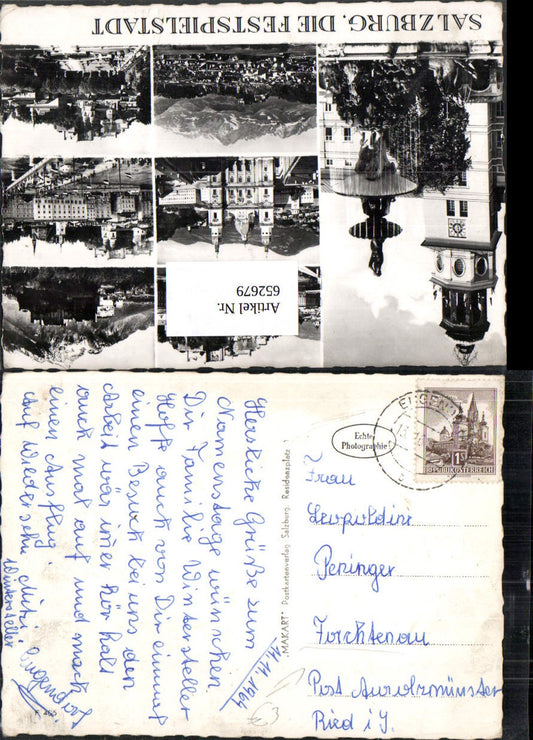 SALZBURG. DIE FESTSPIELSTADT
Artikel Nr.
652679
Herzliche Grüße zum
Namenstage wünschen
Dir Familie Wintersteller
Hoffe auch von Dir einmal
einen Besuch bei uns den
Arbeit wär imer hör halt
auch mal auf und mach
einen Ausflug.
auf wiedersehn Mitzi
Wintersteller
Eugendorf
11.11.1964
"MAKART" Postkartenverlag Salzburg, Residenzplatz
Echte
Photographie
EUGEND
1 S
REPUBLIK ÖSTERREICH
Frau
Leopoldine
Peninger
Forchtenau
Post Aurolzmünster
Ried i J.